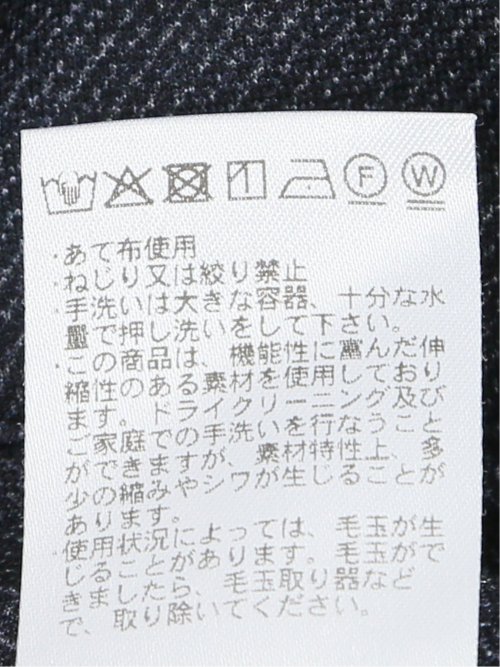 F W
・あて布使用
・ねじり又は絞り禁止
・手洗いは大きな容器、十分な水
量で押し洗いをして下さい。
・この商品は、機能性に富んだ伸
縮性のある素材を使用しており
ます。ドライクリーニング及び
ご家庭での手洗いを行なうこと
ができますが、素材特性上、多
少の縮みやシワが生じることが
あります。
・使用状況によっては、毛玉が生
じることがあります。毛玉がで
きましたら、毛玉取り器など
で、取り除いてください。